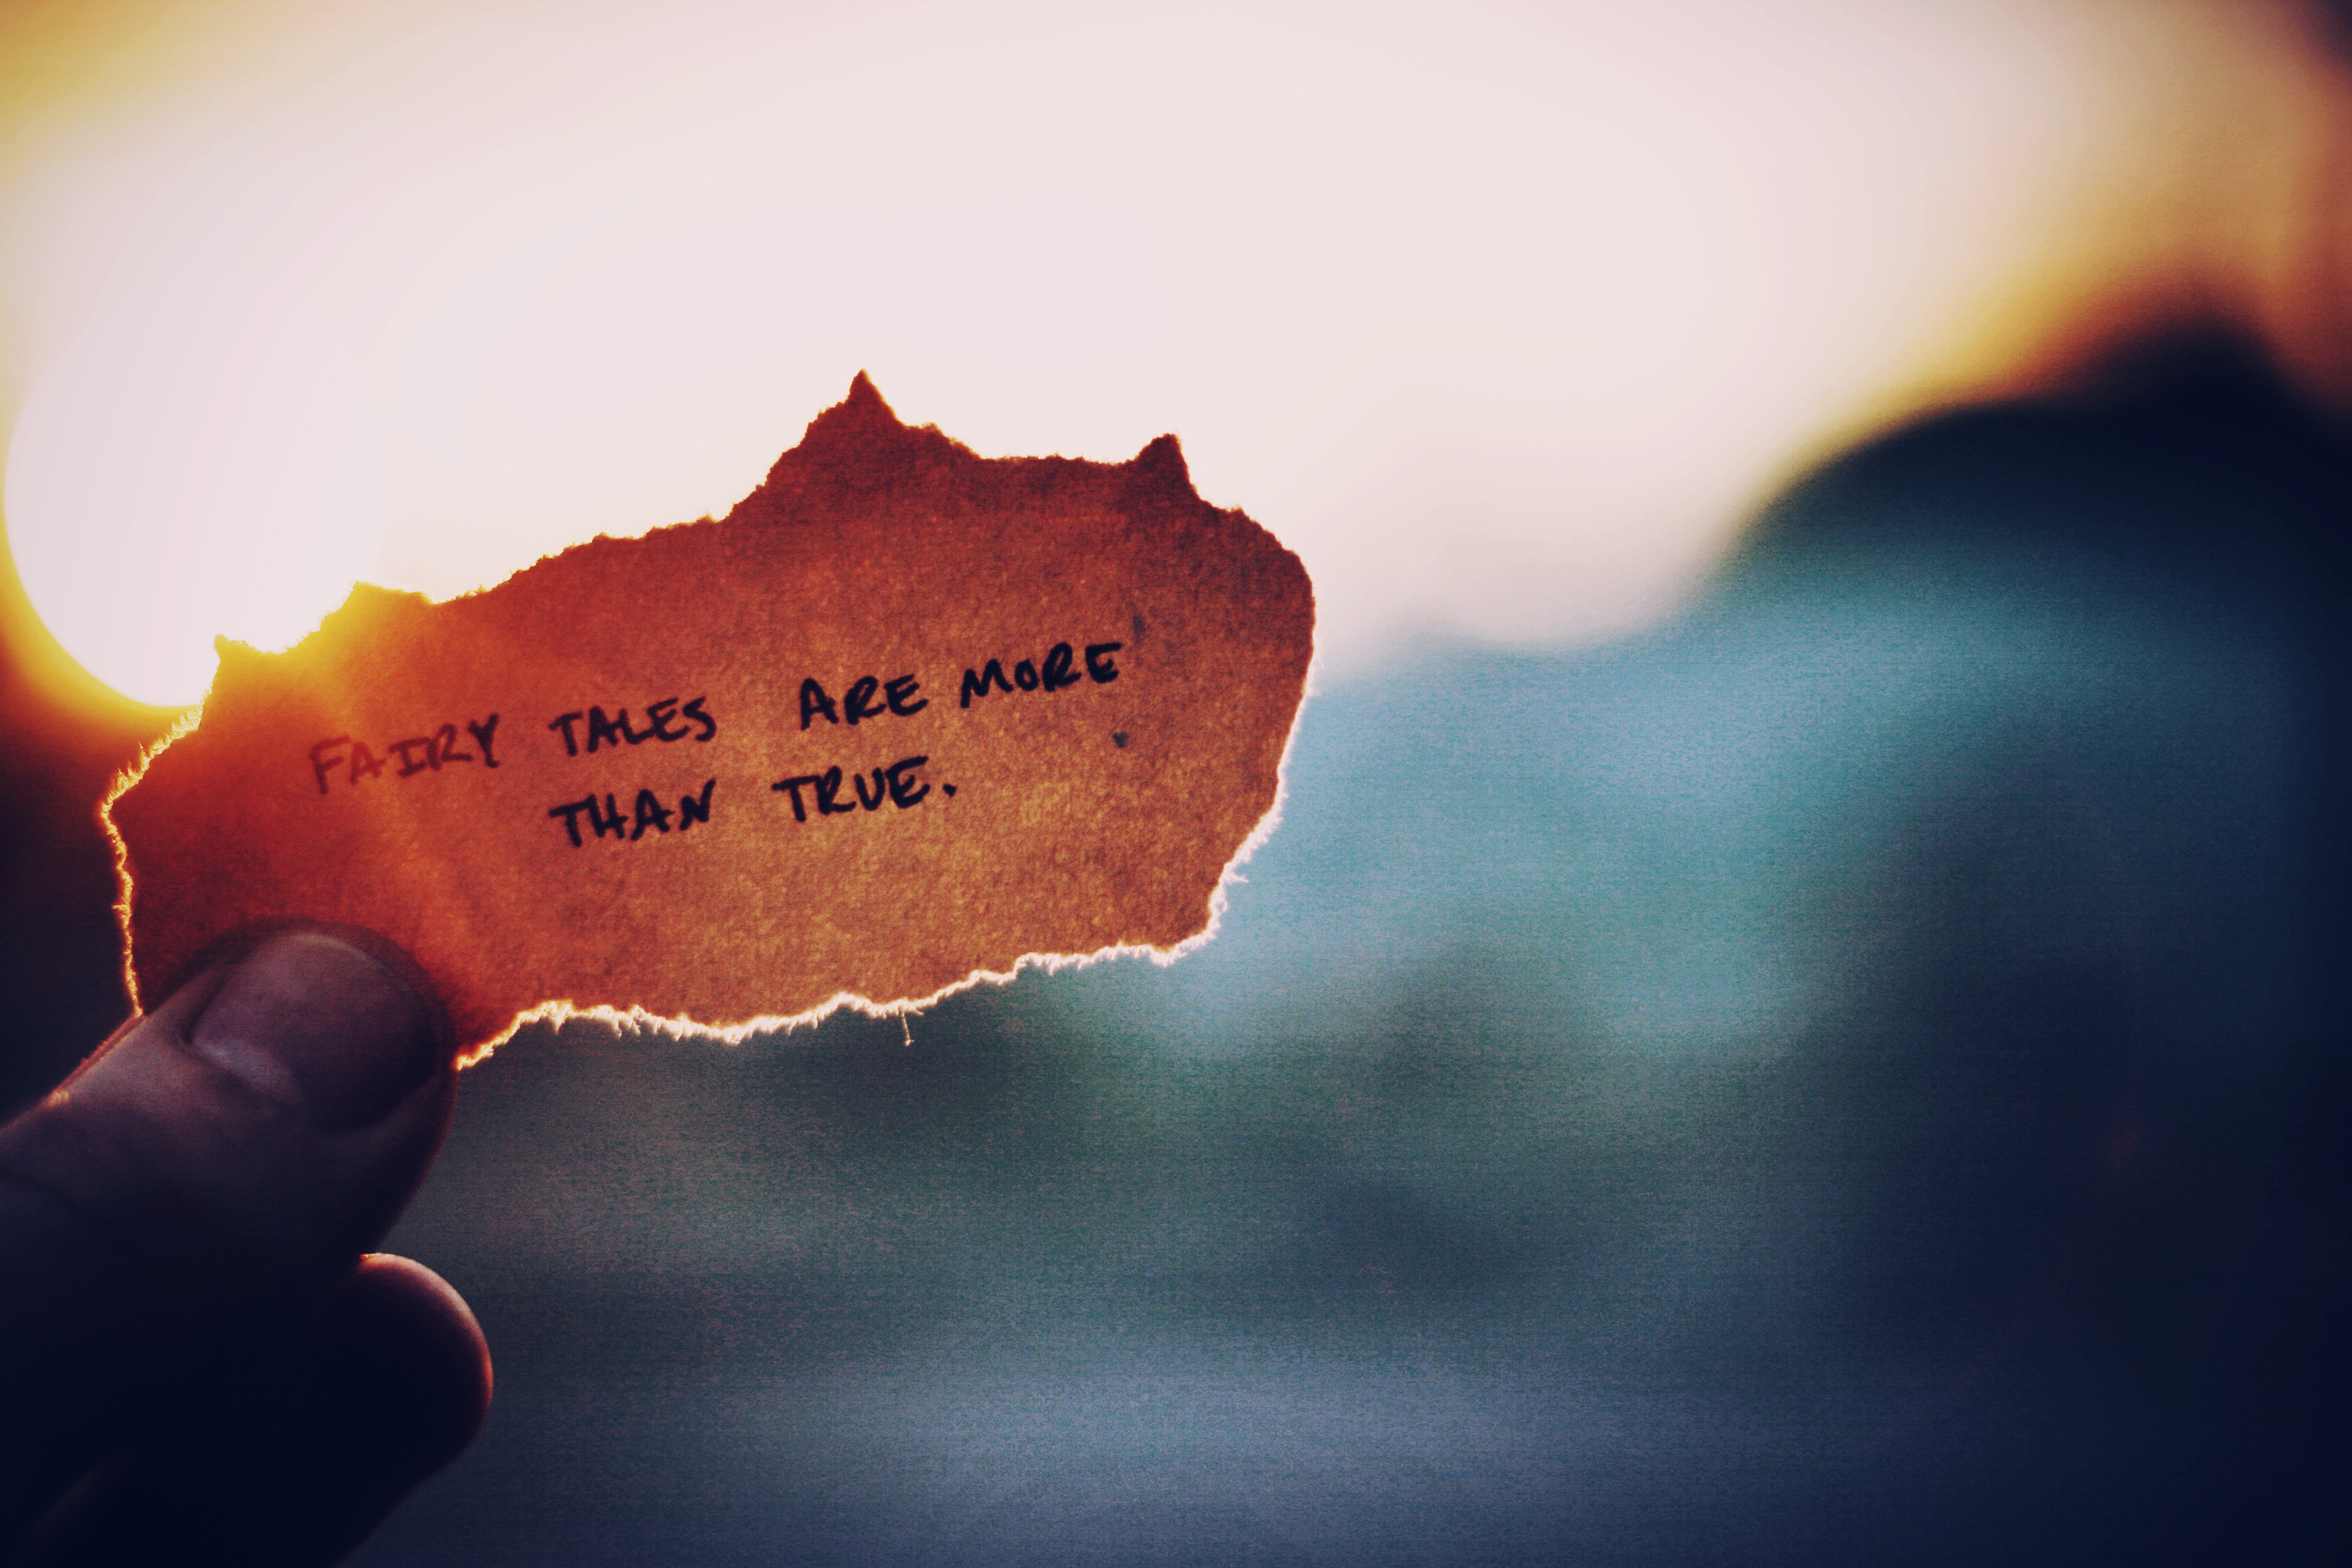 FAIRY TALES ARE MORE
THAN TRUE.